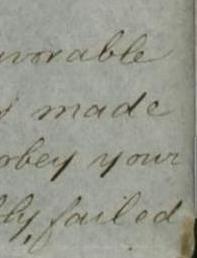 avorable
made
obey your
bly, failed